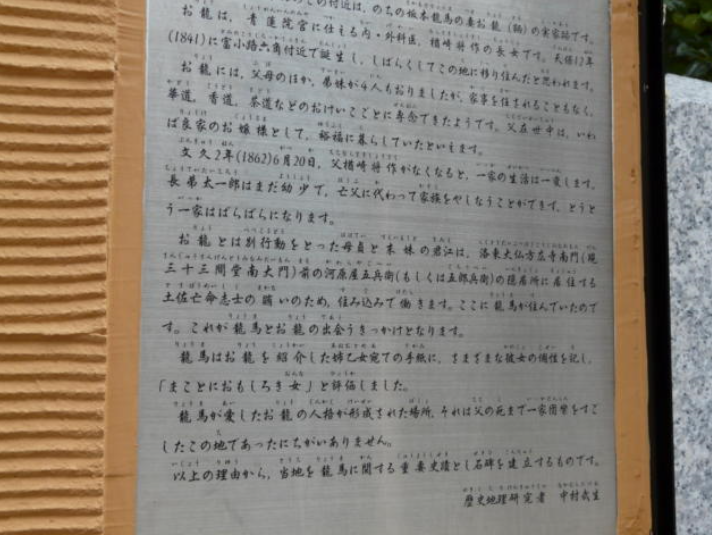 この付近は、のちの坂本龍馬の妻お龍(鞆)の実家跡です。
お龍は、青蓮院宮に仕える内・外科医、楢崎将作の長女です。天保12年
(1841)に富小路六角付近で誕生し、しばらくしてこの地に移り住んだと思われます。
お龍には、父母のほか、弟妹が4人もおりましたが、家事を任されることもなく、
華道、香道、茶道などのおけいこごとに専念できたようです。父在世中は、いわ
ば良家のお嬢様として、裕福に暮らしていたといえます。
文久2年(1862)6月20日、父楢崎将作がなくなると、一家の生活は一変します。
長弟太一郎はまだ幼少で、亡父に代わって家族をやしなうことができず、とうと
う一家はばらばらになります。
お龍とは別行動をとった母貞と末妹の君江は、洛東大仏方広寺南門(現
三十三間堂南大門)前の河原屋五兵衛(もしくは五郎兵衛)の隠居所に居住する
土佐亡命志士の賄いのため、住み込みで働きます。ここに龍馬が住んでいたので
す。これが龍馬とお龍の出会うきっかけとなります。
龍馬はお龍を紹介した姉乙女宛ての手紙に、さまざまな彼女の個性を記し、
「まことにおもしろき女」と評価しました。
龍馬が愛したお龍の人格が形成された場所、それは父の死まで一家団欒をすご
したこの地であったにちがいありません。
以上の理由から、当地を龍馬に関する重要史蹟とし石碑を建立するものです。
歴史地理研究者 中村武生